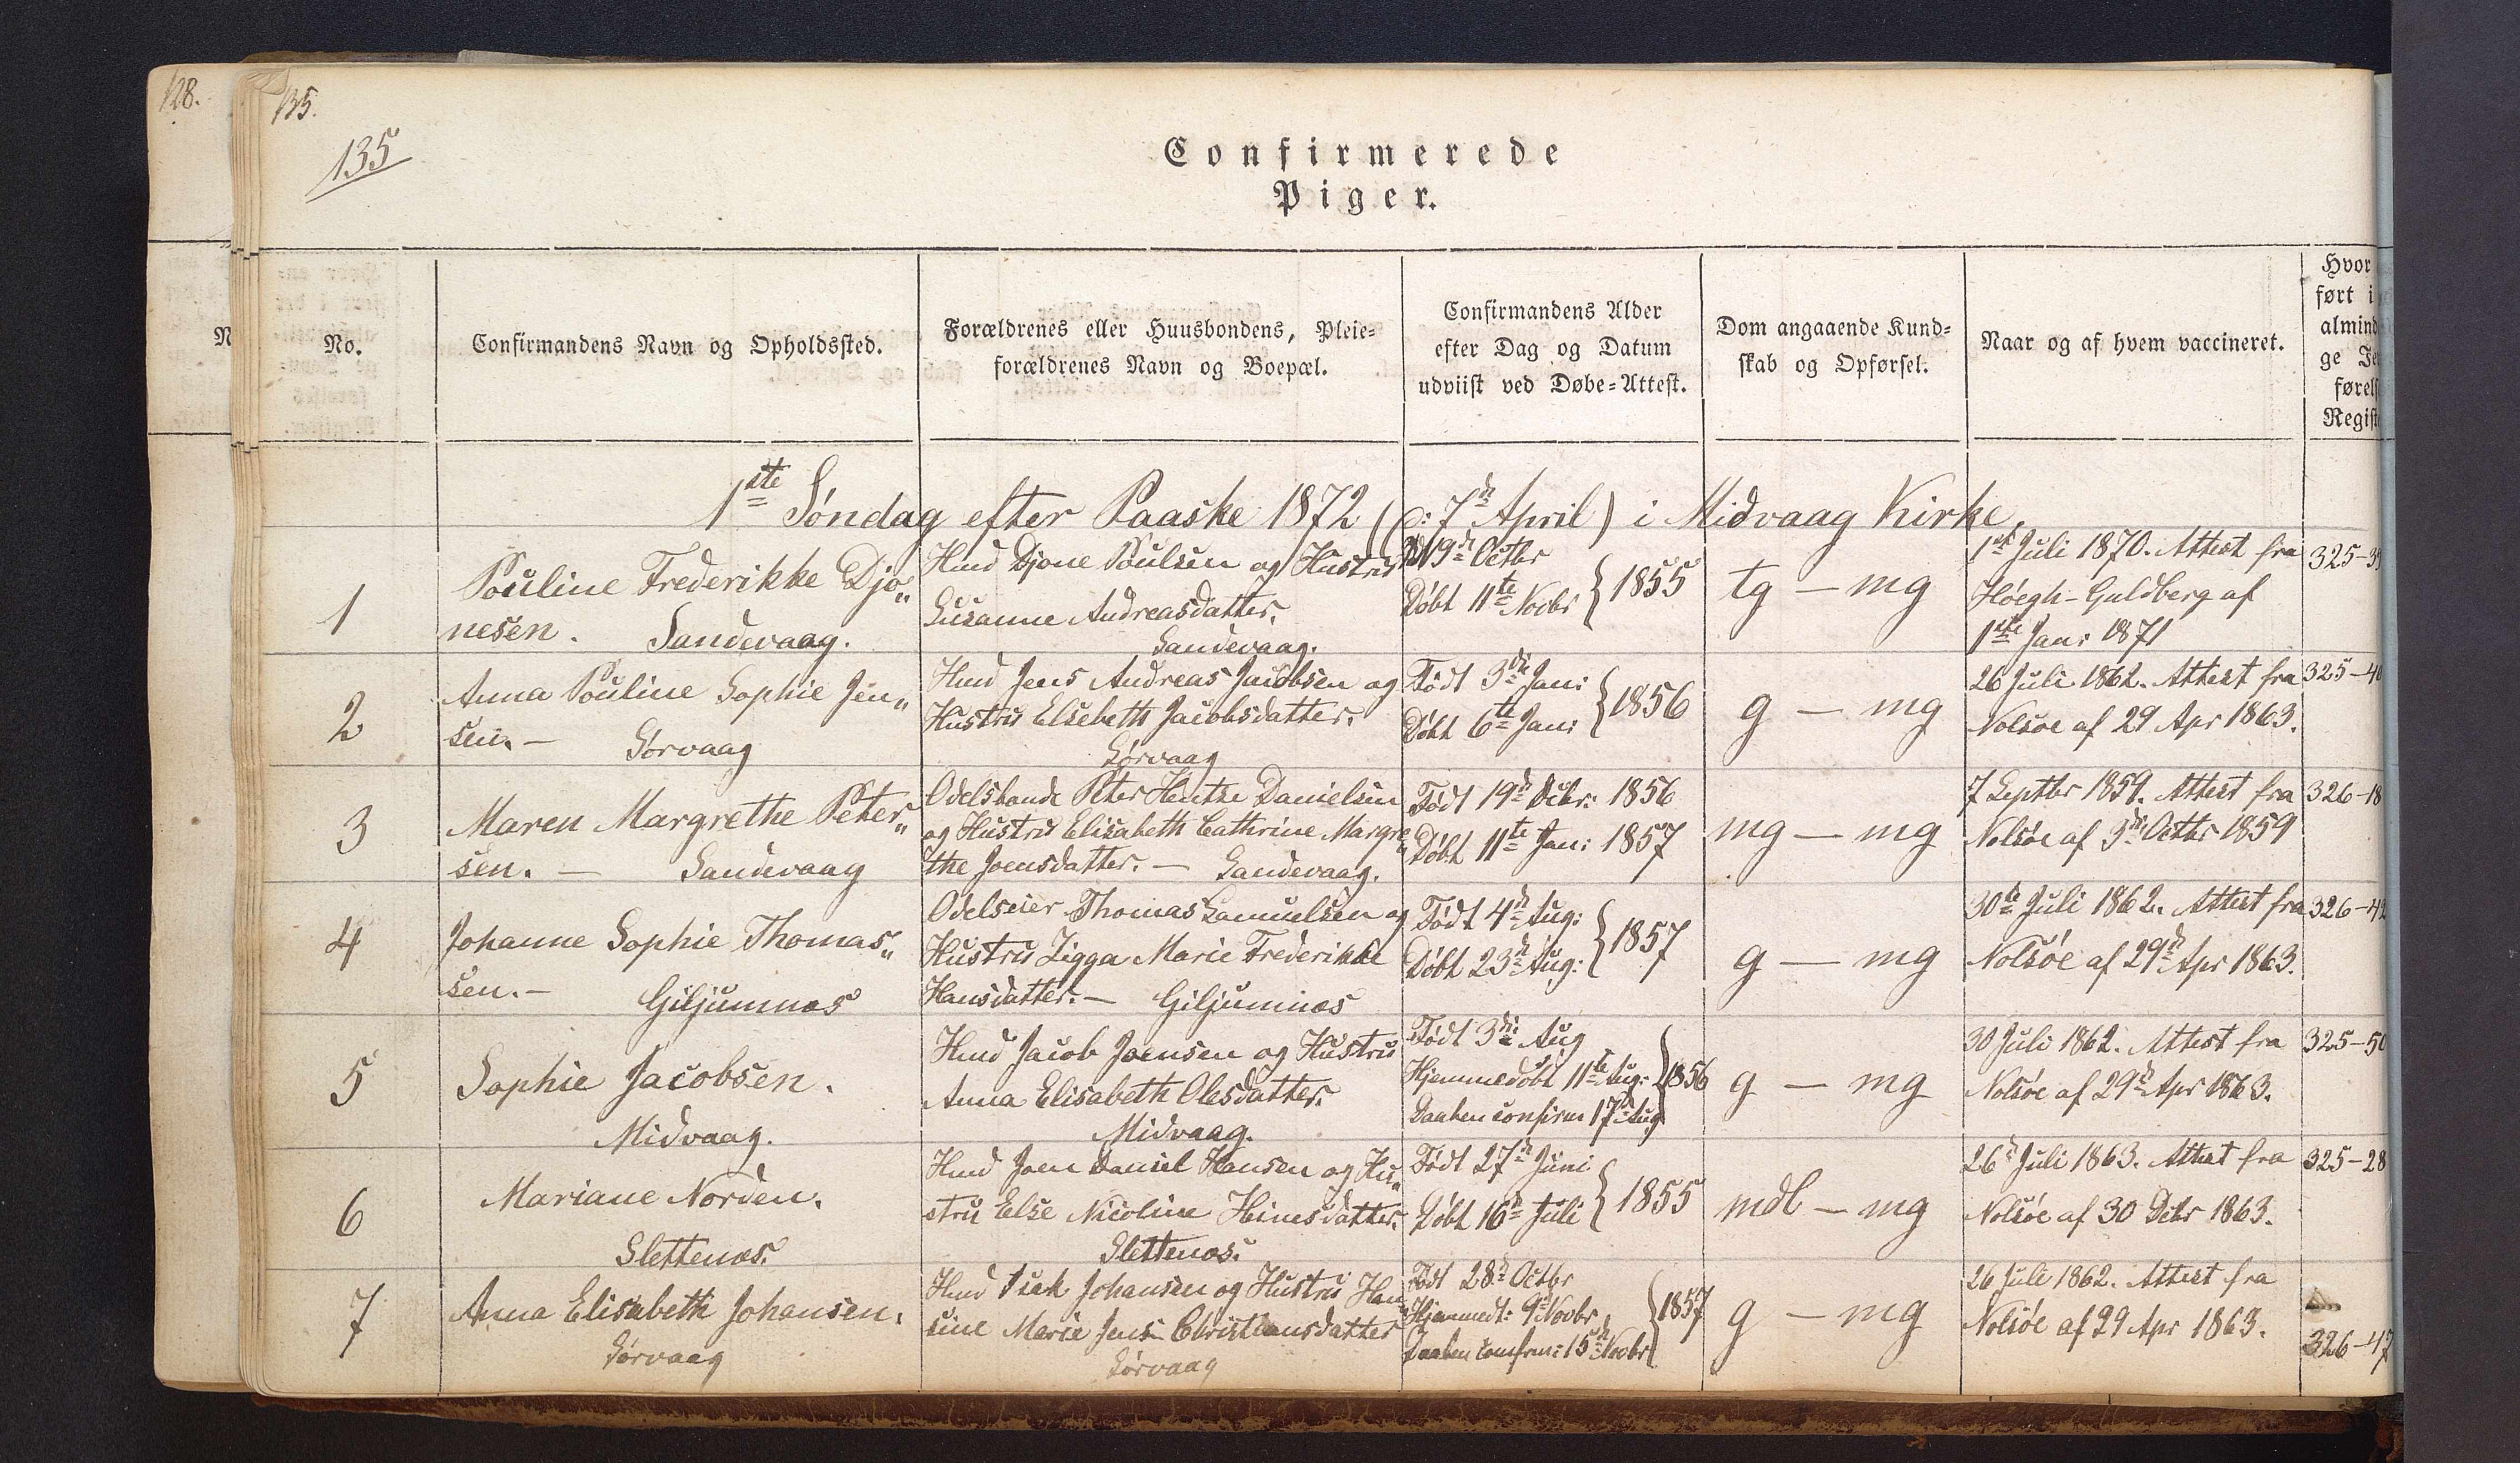 128.
135.
135
Confirmerede
Piger.
No.
Confirmandens Navn og Opholdssted.
Forældrenes eller Huusbondens, Pleie=
forældrenes Navn og Boepæl.
Confirmandens Alder
efter Dag og Datum
udviist ved Døbe=Attest.
Dom angaaende Kund=
skab og Opførsel.
Naar og af hvem vaccineret.
Hvor
ført i
almind
ge Je
førels
Regist
1ste Søndag efter Paaske 1872 (ɔ: 7de April) i Midvaag Kirke.
1
Pouline Frederikke Djo„
nesen. Sandevaag.
Hmd Djone Poulsen og Hustru
Susanne Andreasdatter.
Sandevaag.
19de Octbr
Døbt 11te Novbr } 1855
tg — mg
1ste Juli 1870. Attest fra
Høegh-Guldberg af
1ste Jan: 1871
325-39
2
Anna Pouline Sophie Jen„
sen. — Sørvaag
Hmd Jens Andreas Jacobsen og
Hustru Elsebeth Jacobsdatter.
Sørvaag
Født 3die Jan:
Døbt 6te Jan: } 1856
g — mg
26 Juli 1862. Attest fra
Nolsøe af 29 Apr 1863.
325-40
3
Maren Margrethe Peter„
sen. — Sandevaag
Odelsbonde Peter Hentze Danielsen
og Hustru Elisabeth Cathrine Margre„
the Joensdatter. — Sandevaag.
Født 19de Decbr: 1856
Døbt 11te Jan: 1857
mg — mg
7 Septbr 1859. Attest fra
Nolsøe af 3die Octbr 1859
326-18
4
Johanne Sophie Thomas„
sen. — Giljumnæs
Odelseier Thomas Samuelsen og
Hustru Zigga Marie Frederikke
Hansdatter. — Giljumnæs
Født 4de Aug:
Døbt 23de Aug: } 1857
g — mg
30te Juli 1862. Attest fra
Nolsøe af 29de Apr 1863.
326-42
5
Sophie Jacobsen.
Midvaag.
Hmd Jacob Joensen og Hustru
Anna Elisabeth Olesdatter.
Midvaag.
Født 3die Aug
Hjemmedøbt 11te Aug: } 1856
Daaben confirm 17de Aug
g — mg
30 Juli 1862. Attest fra
Nolsøe af 29de Apr 1863.
325-50
6
Mariane Norden.
Slettenæs.
Hmd Joen Daniel Hansen og Hu„
stru Else Nicoline Heinesdatter.
Slettenæs.
Født 27de Juni
Døbt 16de Juli } 1855
mdl — mg
26de Juli 1863. Attest fra
Nolsøe af 30 Decbr 1863.
325-28
7
Anna Elisabeth Johansen.
Sørvaag
Hmd Isak Johansen og Hustru Han„
sine Marie Jens Christiansdatter
Sørvaag
Født 28de Octbr
Hjemmedt: 9de Novbr } 1857
Daaben confirm: 15de Novbr
g — mg
26 Juli 1862. Attest fra
Nolsøe af 29 Apr 1863.
326-47